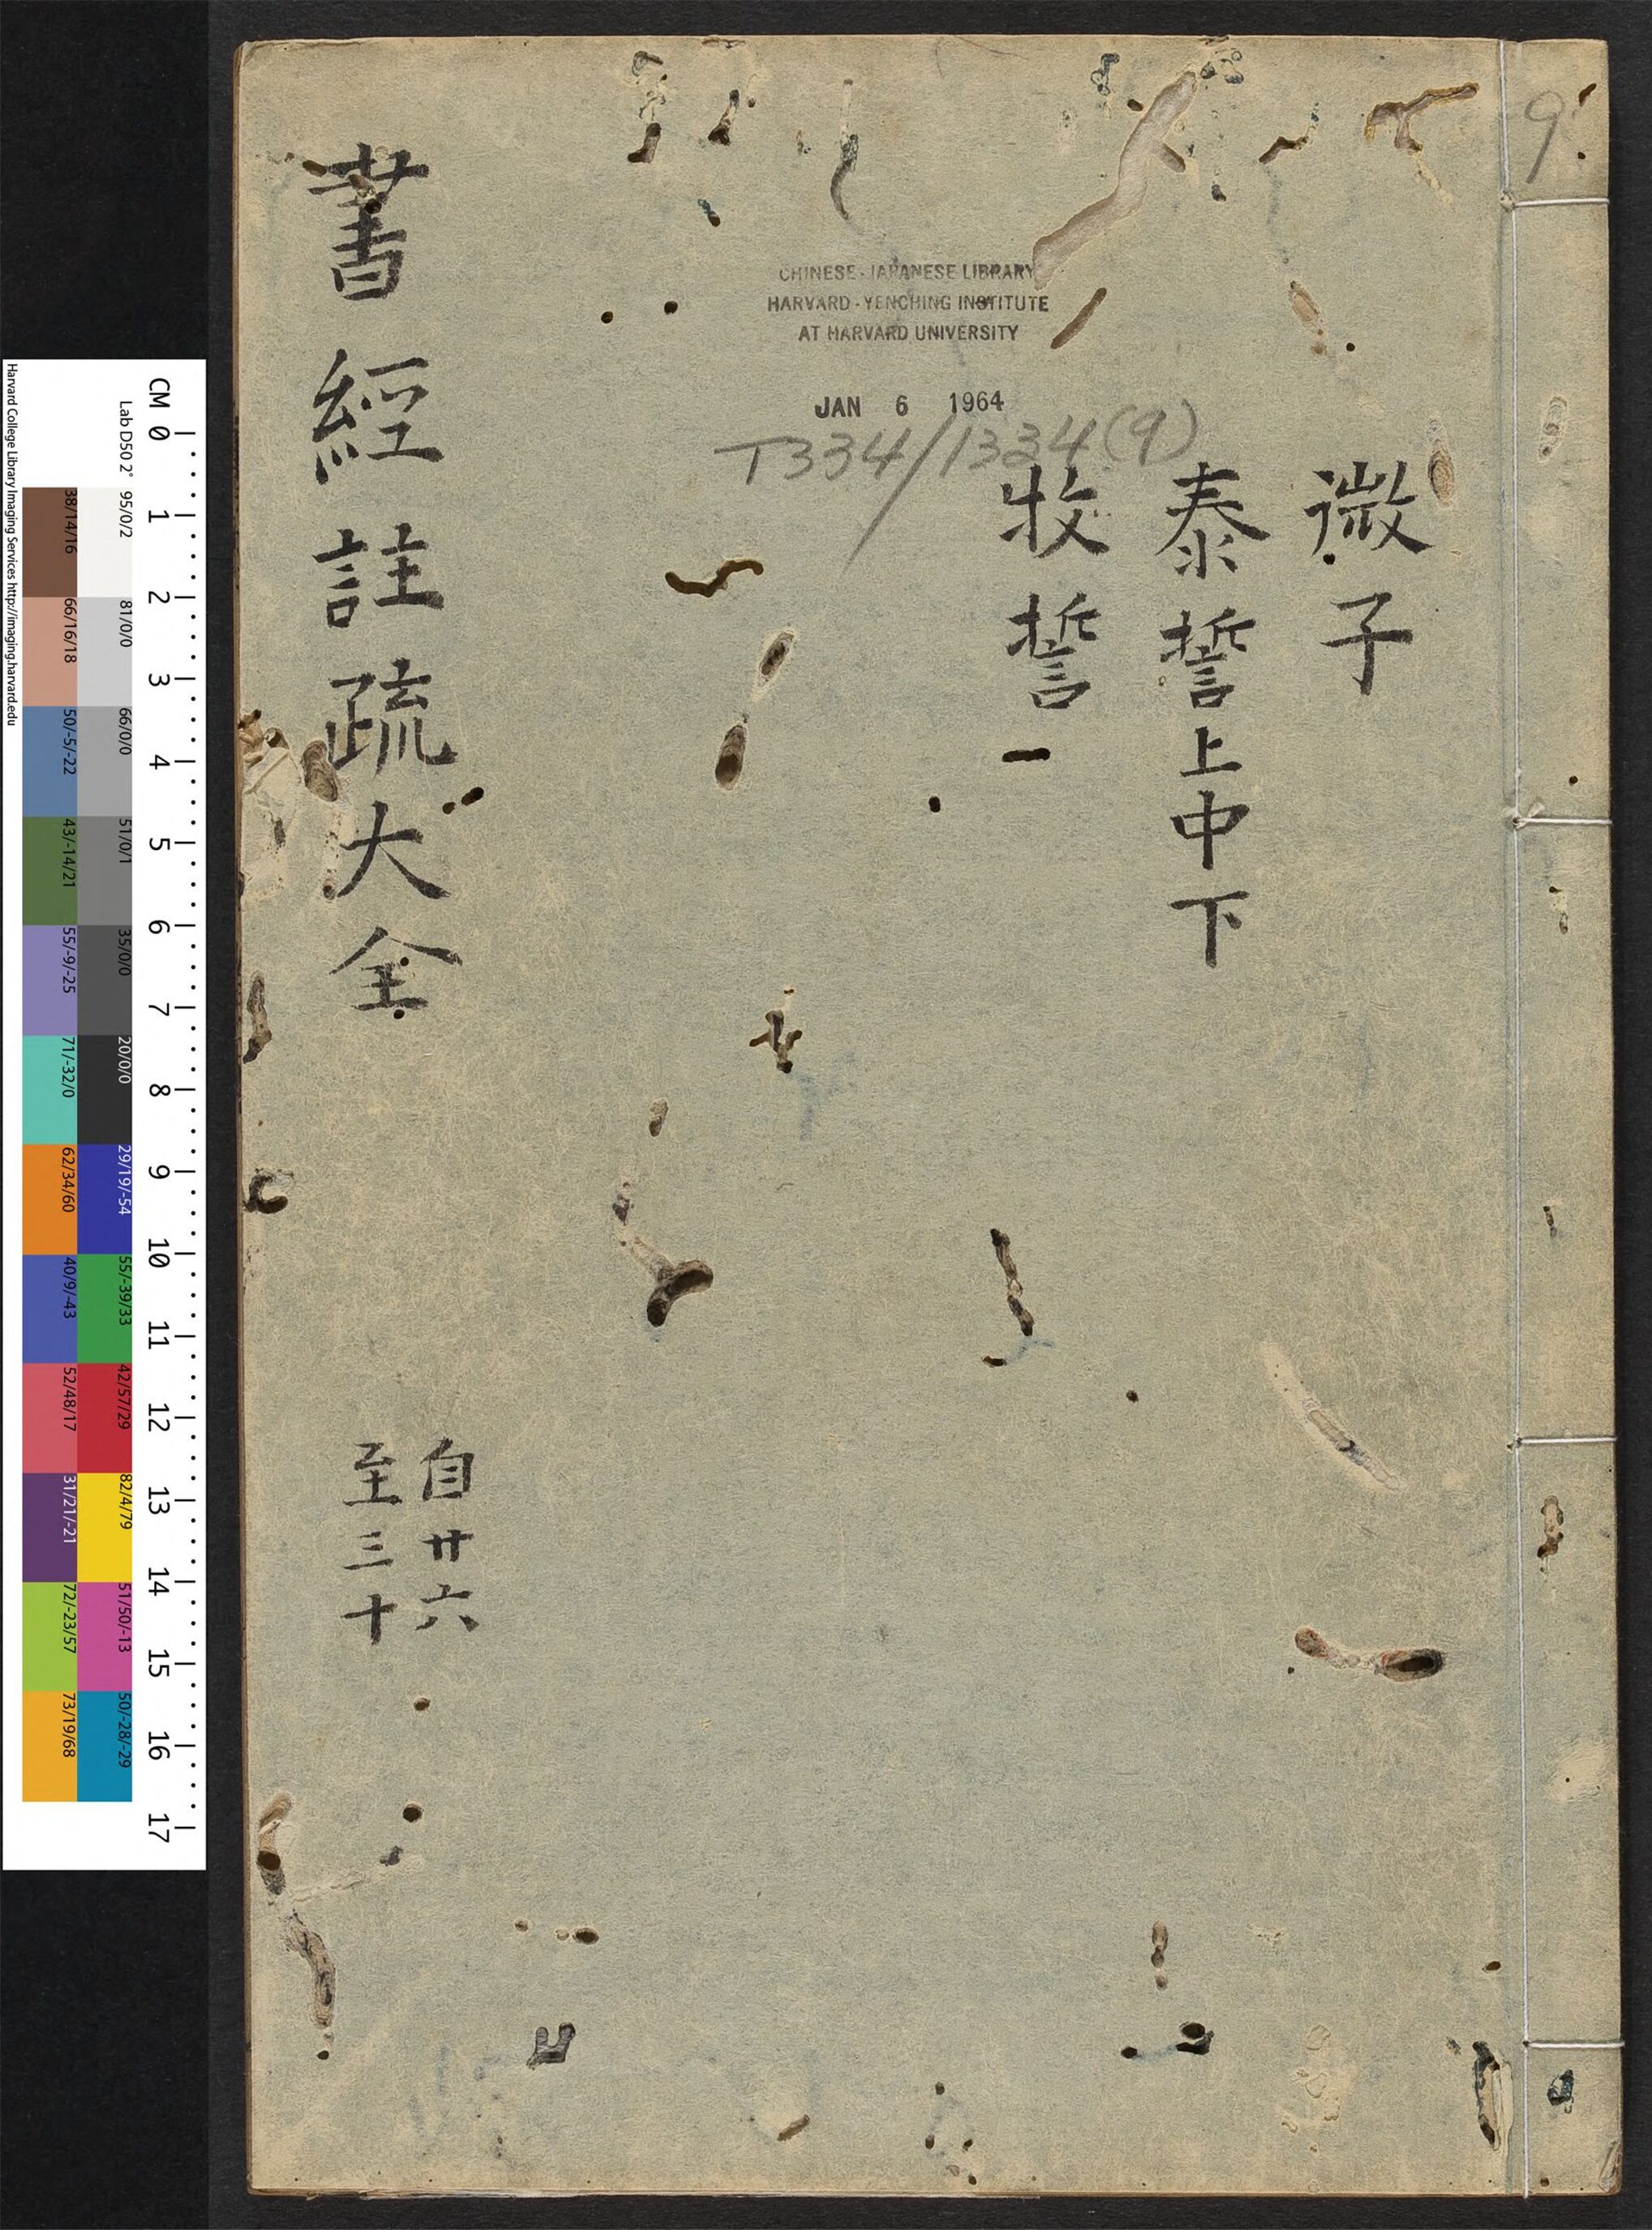 微子
泰誓上中下
牧誓
書經註疏大全
自廿六
至三十
CHINESE-JAPANESE LIBRARY
HARVARD-YENCHING INSTITUTE
AT HARVARD UNIVERSITY
JAN 6 1964
T334/1334(9)
9
CM 0 1 2 3 4 5 6 7 8 9 10 11 12 13 14 15 16 17
Lab D50 2° 95/0/2 81/0/0 66/0/0 51/0/1 35/0/0 20/0/0 29/19/-54 55/-39/33 42/57/29 82/4/79 51/50/-13 50/-28/-29
38/14/16 66/16/18 50/-5/-22 43/-14/21 55/-9/-25 71/-32/0 62/34/60 40/9/-43 52/48/17 31/21/-21 72/-23/57 73/19/68
Harvard College Library Imaging Services http://imaging.harvard.edu